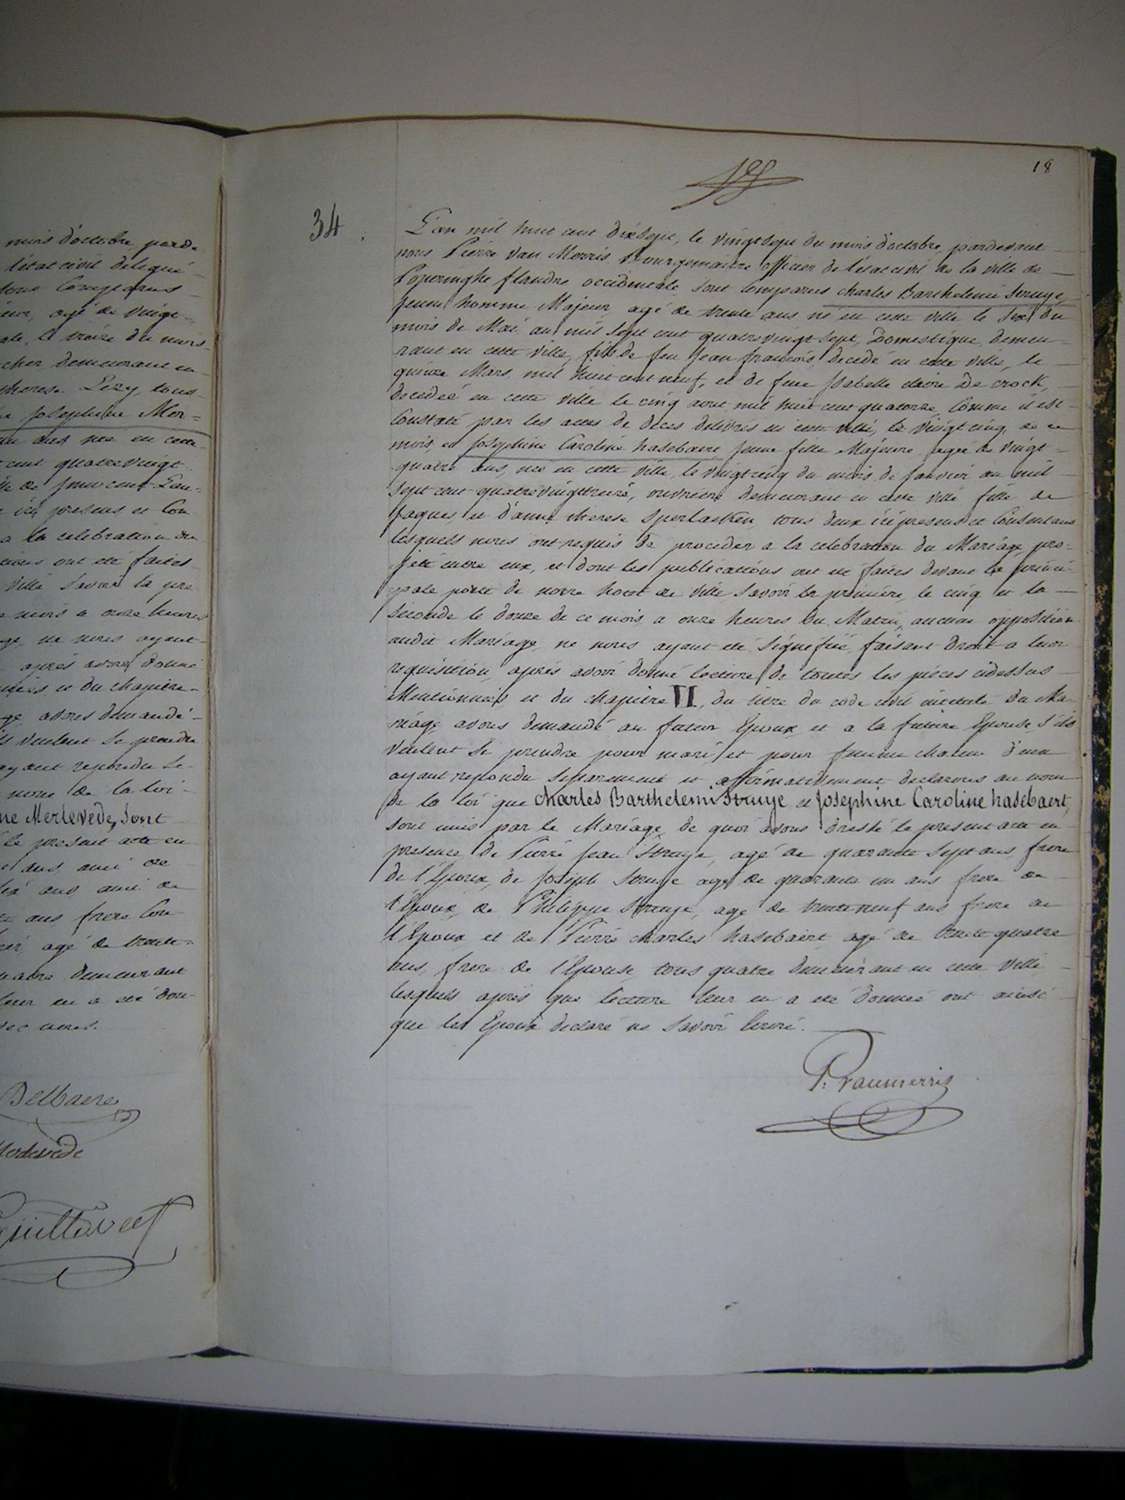 mois d'octobre parde
l'état civil delegué
agé de vingt
le treize du mois
cher demeurant en
therese
josephine Mer=
ans née en cette
cent quatre vingt
presens et Con
a la celebration du
cions ont été faites
ville savoir la pre
mois a onze heures
ge ne nous ayant
après avoir donné
et du chapitre
ge avons demandé
veulent se prendre
ayant repondu se
nom de la loi
ne Merlevede, sont
le present acte en
ans, ami de
ans, ami de
ans frere
agé de trente
demeurant
leur en a été don
avec nous.
Delbaere
Merlevede
18
34
L'an mil huit cent dixsept, le vingtsept du mois d'octobre pardevant
nous Pierre van Merris Bourgemaitre officier de l'etat civil de la ville de
Poperinghe flandre occidentale sont comparus charles Barthelemi Struye,
jeune homme Majeur, agé de trente ans né en cette ville le six du
mois de Mai an mil sept cent quatrevingt sept, Domestique, demeu-
rant en cette ville, fils de feu Jean francois, decedé en cette ville, le
quinze Mars mil huit cent neuf, et de feue Isabelle claire De crock,
decedée en cette ville le cinq aout mil huit cent quatorze, comme il est
constaté par les actes de deces delivrés en cette ville, le vingt cinq de ce
mois, et Josephine Caroline hasebaert jeune fille Majeure, agée de vingt
quatre ans, née en cette ville, le vingt cinq du mois de Janvier an mil
sept cent quatrevingttreize, ouvriere demeurant en cette ville fille de
Jaques et d'anne therese tous deux ici presens et Consentans
lesquels nous ont requis de proceder a la celebration du Mariage pro-
jété entre eux, et dont les publications ont été faites devant la princi-
pale porte de notre hotel de ville savoir la première, le cinq et la
seconde le douze de ce mois a onze heures du Matin, aucune opposition
audit Mariage, ne nous ayant été signifiée, faisant droit a leur
requisition, après avoir donné lecture de toutes les pièces cidessus
Mentionnées et du chapitre VI, du titre du code civil intitulé du Ma-
riage avons demandé au futur Epoux et a la future Epouse, s'ils
veulent se prendre pour mari et pour femme chacun d'eux
ayant repondu separement et affirmativement, declarons au nom
de la loi que Charles Barthelemi Struye et Josephine Caroline hasebaert,
sont unis par le Mariage, de quoi avons dressé le present acte en
presence de Pierre Jean Struye, agé de quarante sept ans, frere
de l'Epoux, de Joseph Struye agé de quarante un ans frere de
l'Epoux, de Philippe Struye, agé de trente neuf ans frere de
l'Epoux et de Pierre charles hasebaert agé de trente quatre
ans, frere de l'Epouse tous quatre demeurant en cette ville
lesquels après que lecture leur en a été donnée ont ainsi
que les Epoux declaré ne savoir Ecrire.
P. vanmerris